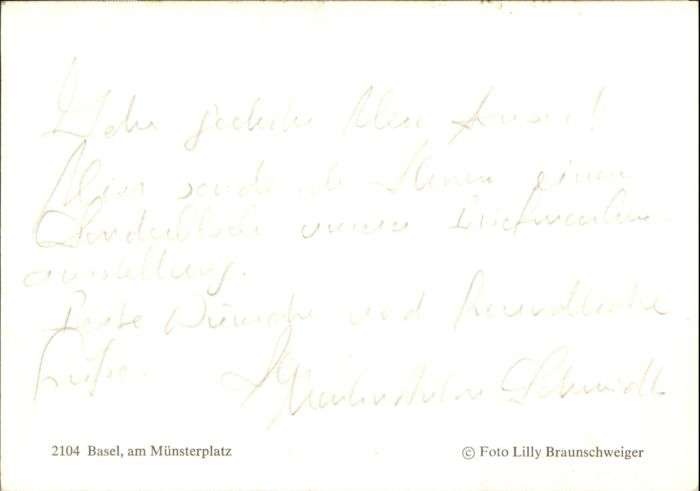 Sehr geehrter Herr
Hier sende ich Ihnen einen
unserer Briefmarken-
ausstellung.
Beste Wünsche und freundliche
Grüße.
Schmidt
2104 Basel, am Münsterplatz
© Foto Lilly Braunschweiger